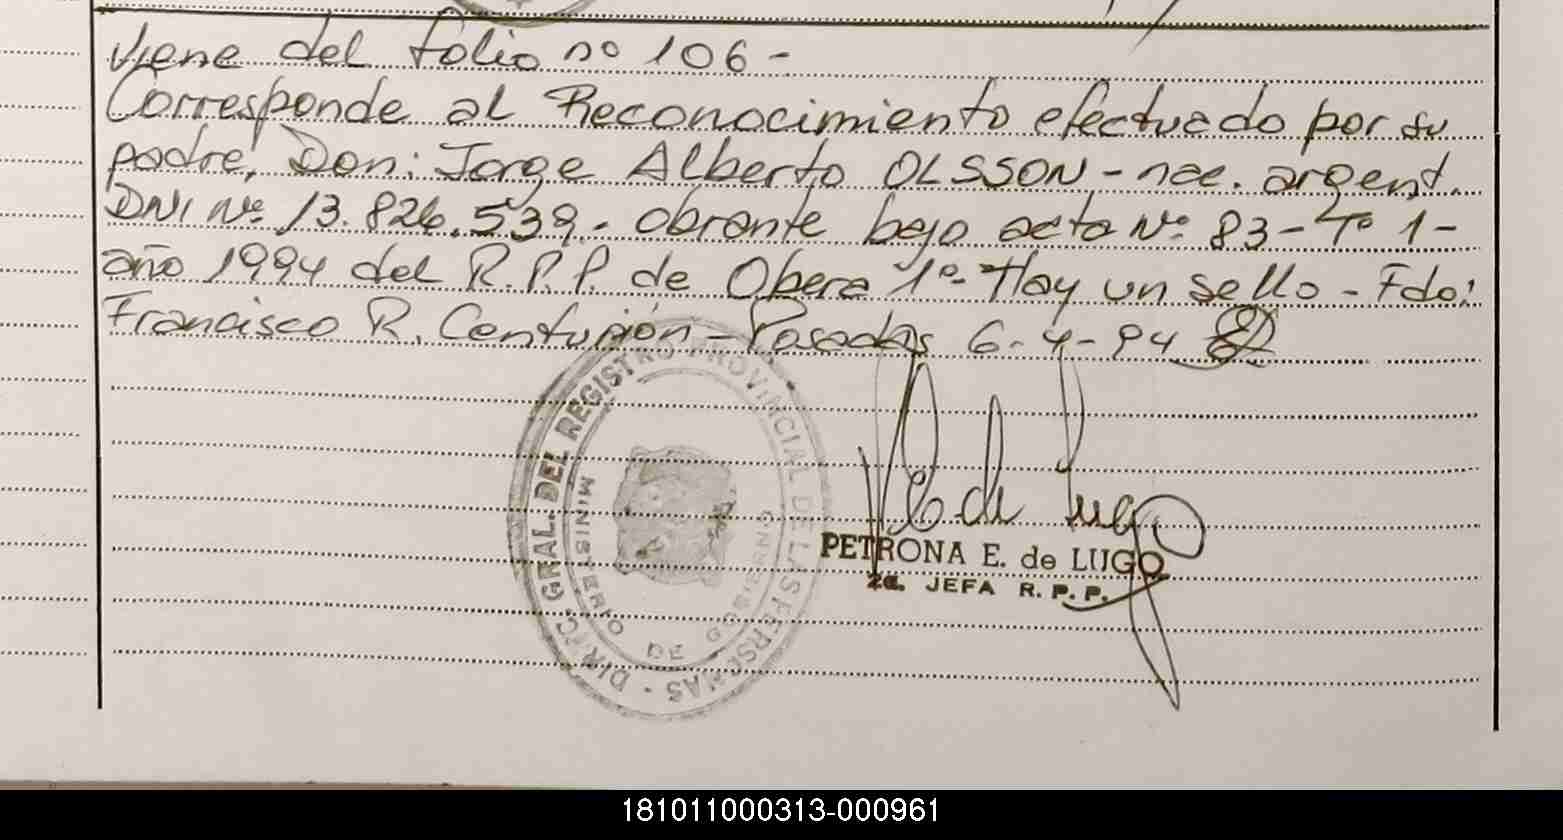 Viene del folio nº 106 -
Corresponde al Reconocimiento efectuado por su
padre, Don: Jorge Alberto OLSSON - nac. argent.
DNI Nº 13.826.539. obrante bajo acta Nº 83 - Tº 1 -
año 1994 del R.P.P. de Obera 1º - Hay un sello - Fdo:
Francisco R. Centurión - Posadas 6-4-94
DIREC. GRAL. DEL REGISTRO PROVINCIAL DE LAS PERSONAS
MINISTERIO DE GOBIERNO
PETRONA E. de LUGO
2a. JEFA R. P. P.
181011000313-000961